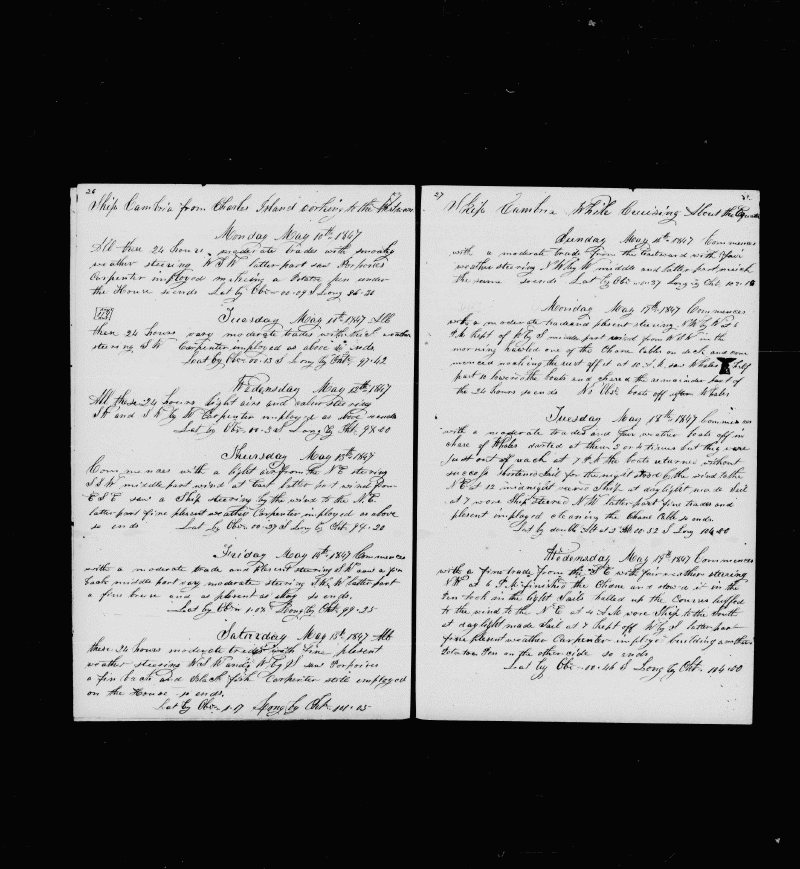 26
Ship Cambria from Charles Island working to the
Monday May 10th 1847
All these 24 hours moderate trades with smoaky
weather steering W S W latter part saw Porpoises
Carpenter imployed making a Potatoe pen under
the House so ends Lat by Obs 00.09 S Long 96.20
Tuesday May 11th 1847 All
these 24 hours very moderate trades with weather
steering S W Carpenter imployed as above so ends
Lat by Obs 00.13 S Long by Cht 97.42
Wednesday May 12th 1847
All these 24 hours light airs and calm steering
S W and S W by W Carpenter imployed as above so ends
Lat by Obs 00.32 S Long by Cht 98.00
Thursday May 13th 1847
Commences with a light air from the N E steering
S S W middle part wind at East latter part wind from
E S E saw a Ship steering by the wind to the N E
latter part fine plesent weather Carpenter imployed as above
so ends Lat by Obs 00.37 S Long by Cht 98.20
Friday May 14th 1847 Commences
with a moderate trade and plesent steering S W saw a fin
back middle part very moderate steering S W by W latter part
a fine breeze and as plesent as so ends
Lat by Obs 1.02 Long by Cht 99.25
Saturday May 15th 1847 All
these 24 hours moderate trades with fine plesent
weather steering W S W and W by S saw Porpoises
a fin back and Black fish Carpenter still employed
on the House so ends
Lat by Obs 1.07 Long by Cht 101.05
27
Ship Cambria While Cruising About the
Sunday May 16th 1847 Commences
with a moderate trade from the Eastward with fair
weather steering N W by W middle and latter part much
the same so ends Lat by Obs 0.37 Long by Cht 102.18
Monday May 17th 1847 Commences
with a moderate trade and plesent steering N W by W at 6
P.M kept of W by S middle part wind from W S W in the
morning hawled one of the Chane cables on deck and com
menced nocking the rust off it at 10 A.M saw Whales
part 10 lowered the boats and chased the remainder part of
the 24 hours so ends No Obs boats off after Whales
Tuesday May 18th 1847 Commences
with a moderate trades and fair weather boats off in
chase of Whales darted at them 3 or 4 times but they were
just out of reach at 7 P.M the boats returned without
success shortened Sail for the night stood by the wind to the
N E at 12 midnight wore Ship at daylight made Sail
at 7 wore Ship steered N W latter part fine trades and
plesent imployed cleaning the Chane Cable so ends
Lat by 00.32 S Long 104.00
Wednesday May 19th 1847 Commences
with a fine trade from the S E with fair weather steering
N W at 6 P.M finished the Chane and stowed it in the
Pen took in the light Sails halled up the Courses luffed
to the wind to the N E at 4 A.M wore Ship to the South
at daylight made Sail at 7 kept off W by S latter part
fine plesent weather Carpenter imployed building another
Potatoe Pen on the other side so ends
Lat by Obs 00.46 S Long by Cht 104.00